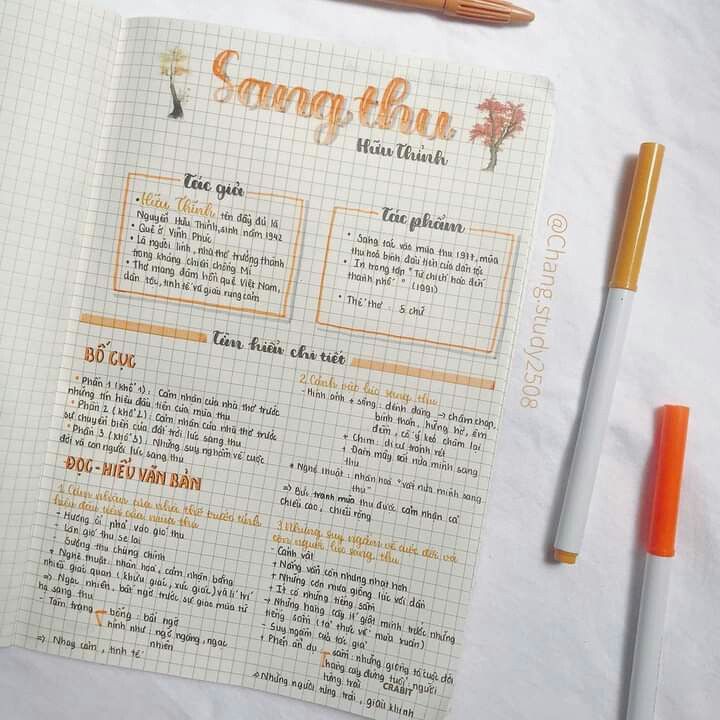 Sang thu
Hữu Thỉnh
Tác giả
• Hữu Thỉnh tên đầy đủ là
Nguyễn Hữu Thỉnh, sinh năm 1942
• Quê ở Vĩnh Phúc
• Là người lính, nhà thơ trưởng thành
trong kháng chiến chống Mĩ
• Thơ mang đậm hồn quê Việt Nam,
dân tộc, tinh tế và giàu rung cảm
Tác phẩm
• Sáng tác vào mùa thu 1977, mùa
thu hoà bình đầu tiên của dân tộc
• In trong tập "Từ chiến hào đến
thành phố" (1991)
• Thể thơ: 5 chữ
Tìm hiểu chi tiết
BỐ CỤC
• Phần 1 (khổ 1): Cảm nhận của nhà thơ trước
những tín hiệu đầu tiên của mùa thu
• Phần 2 (khổ 2): Cảm nhận của nhà thơ trước
sự chuyển biến của đất trời lúc sang thu
• Phần 3 (khổ 3): Những suy nghẫm về cuộc
đời và con người lúc sang thu
ĐỌC - HIỂU VĂN BẢN
1. Cảm nhận của nhà thơ trước tính
hiệu đầu tiên của mùa thu
- Hương ổi phả vào gió thu
- Làn gió thu se lại
- Sương thu chùng chình
+ Nghệ thuật: nhân hoá, cảm nhận bằng
nhiều giác quan (khứu giác, xúc giác) và lí trí
=> Ngạc nhiên, bất ngờ trước sự giao mùa từ
hạ sang thu
- Tâm trạng bỗng: bất ngờ
hình như: ngỡ ngàng, ngạc
nhiên
=> Nhạy cảm, tinh tế
2. Cảnh vật lúc sang thu
- Hình ảnh + sông: dềnh dàng -> chậm chạp,
bình thản, hững hờ, êm
đềm, cố ý kéo chậm lại
+ Chim: di cư tránh rét
+ Đám mây: vắt nửa mình sang
thu
+ Nghệ thuật: nhân hoá "vắt nửa mình sang
thu"
=> Bức tranh mùa thu được cảm nhận cả
chiều cao, chiều rộng
3. Những suy ngẫm về cuộc đời và
con người lúc sang thu
- Cảnh vật
+ Nắng vẫn còn nhưng nhạt hơn
+ Những cơn mưa giông lúc vơi dần
+ Ít có những tiếng sấm
-> Những hàng cây ít giật mình trước những
tiếng sấm (tả thực về mùa xuân)
- Suy ngẫm của tác giả
+ Phép ẩn dụ sấm: những giông tố cuộc đời
hàng cây đứng tuổi: người
từng trải
-> Những người từng trải, giàu kinh
CRABIT
@Chang.study2508